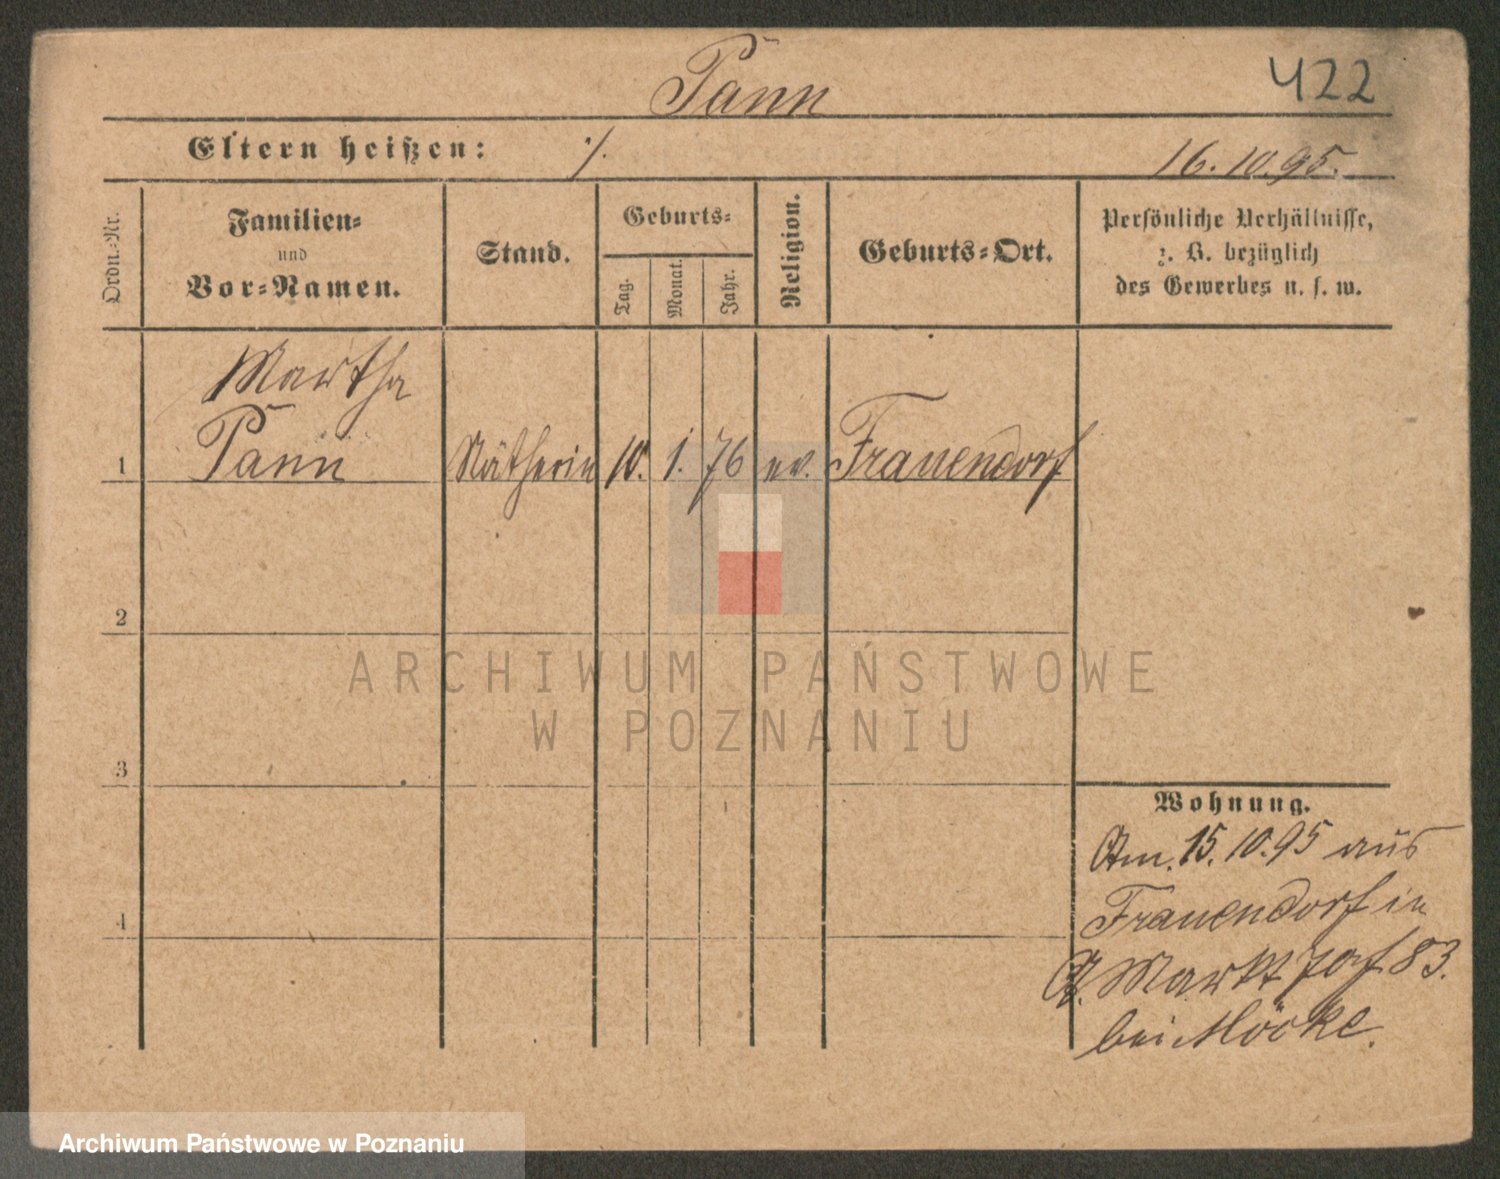 Pann
422
Eltern heißen: ./.
16.10.95.
Ordn.-Nr.
Familien-
und
Vor-Namen.
Stand.
Geburts-
Tag.
Monat.
Jahr.
Religion.
Geburts-Ort.
Persönliche Verhältnisse,
z. B. bezüglich
des Gewerbes u. s. w.
Martha
1 Pann Nätherin 10. 1. 76 ev. Frauendorf
2
ARCHIWUM PAŃSTWOWE
W POZNANIU
3
Wohnung.
Am 15.10.95 aus
Frauendorf in
A. Markt 83.
bei Möcke.
4
Archiwum Państwowe w Poznaniu